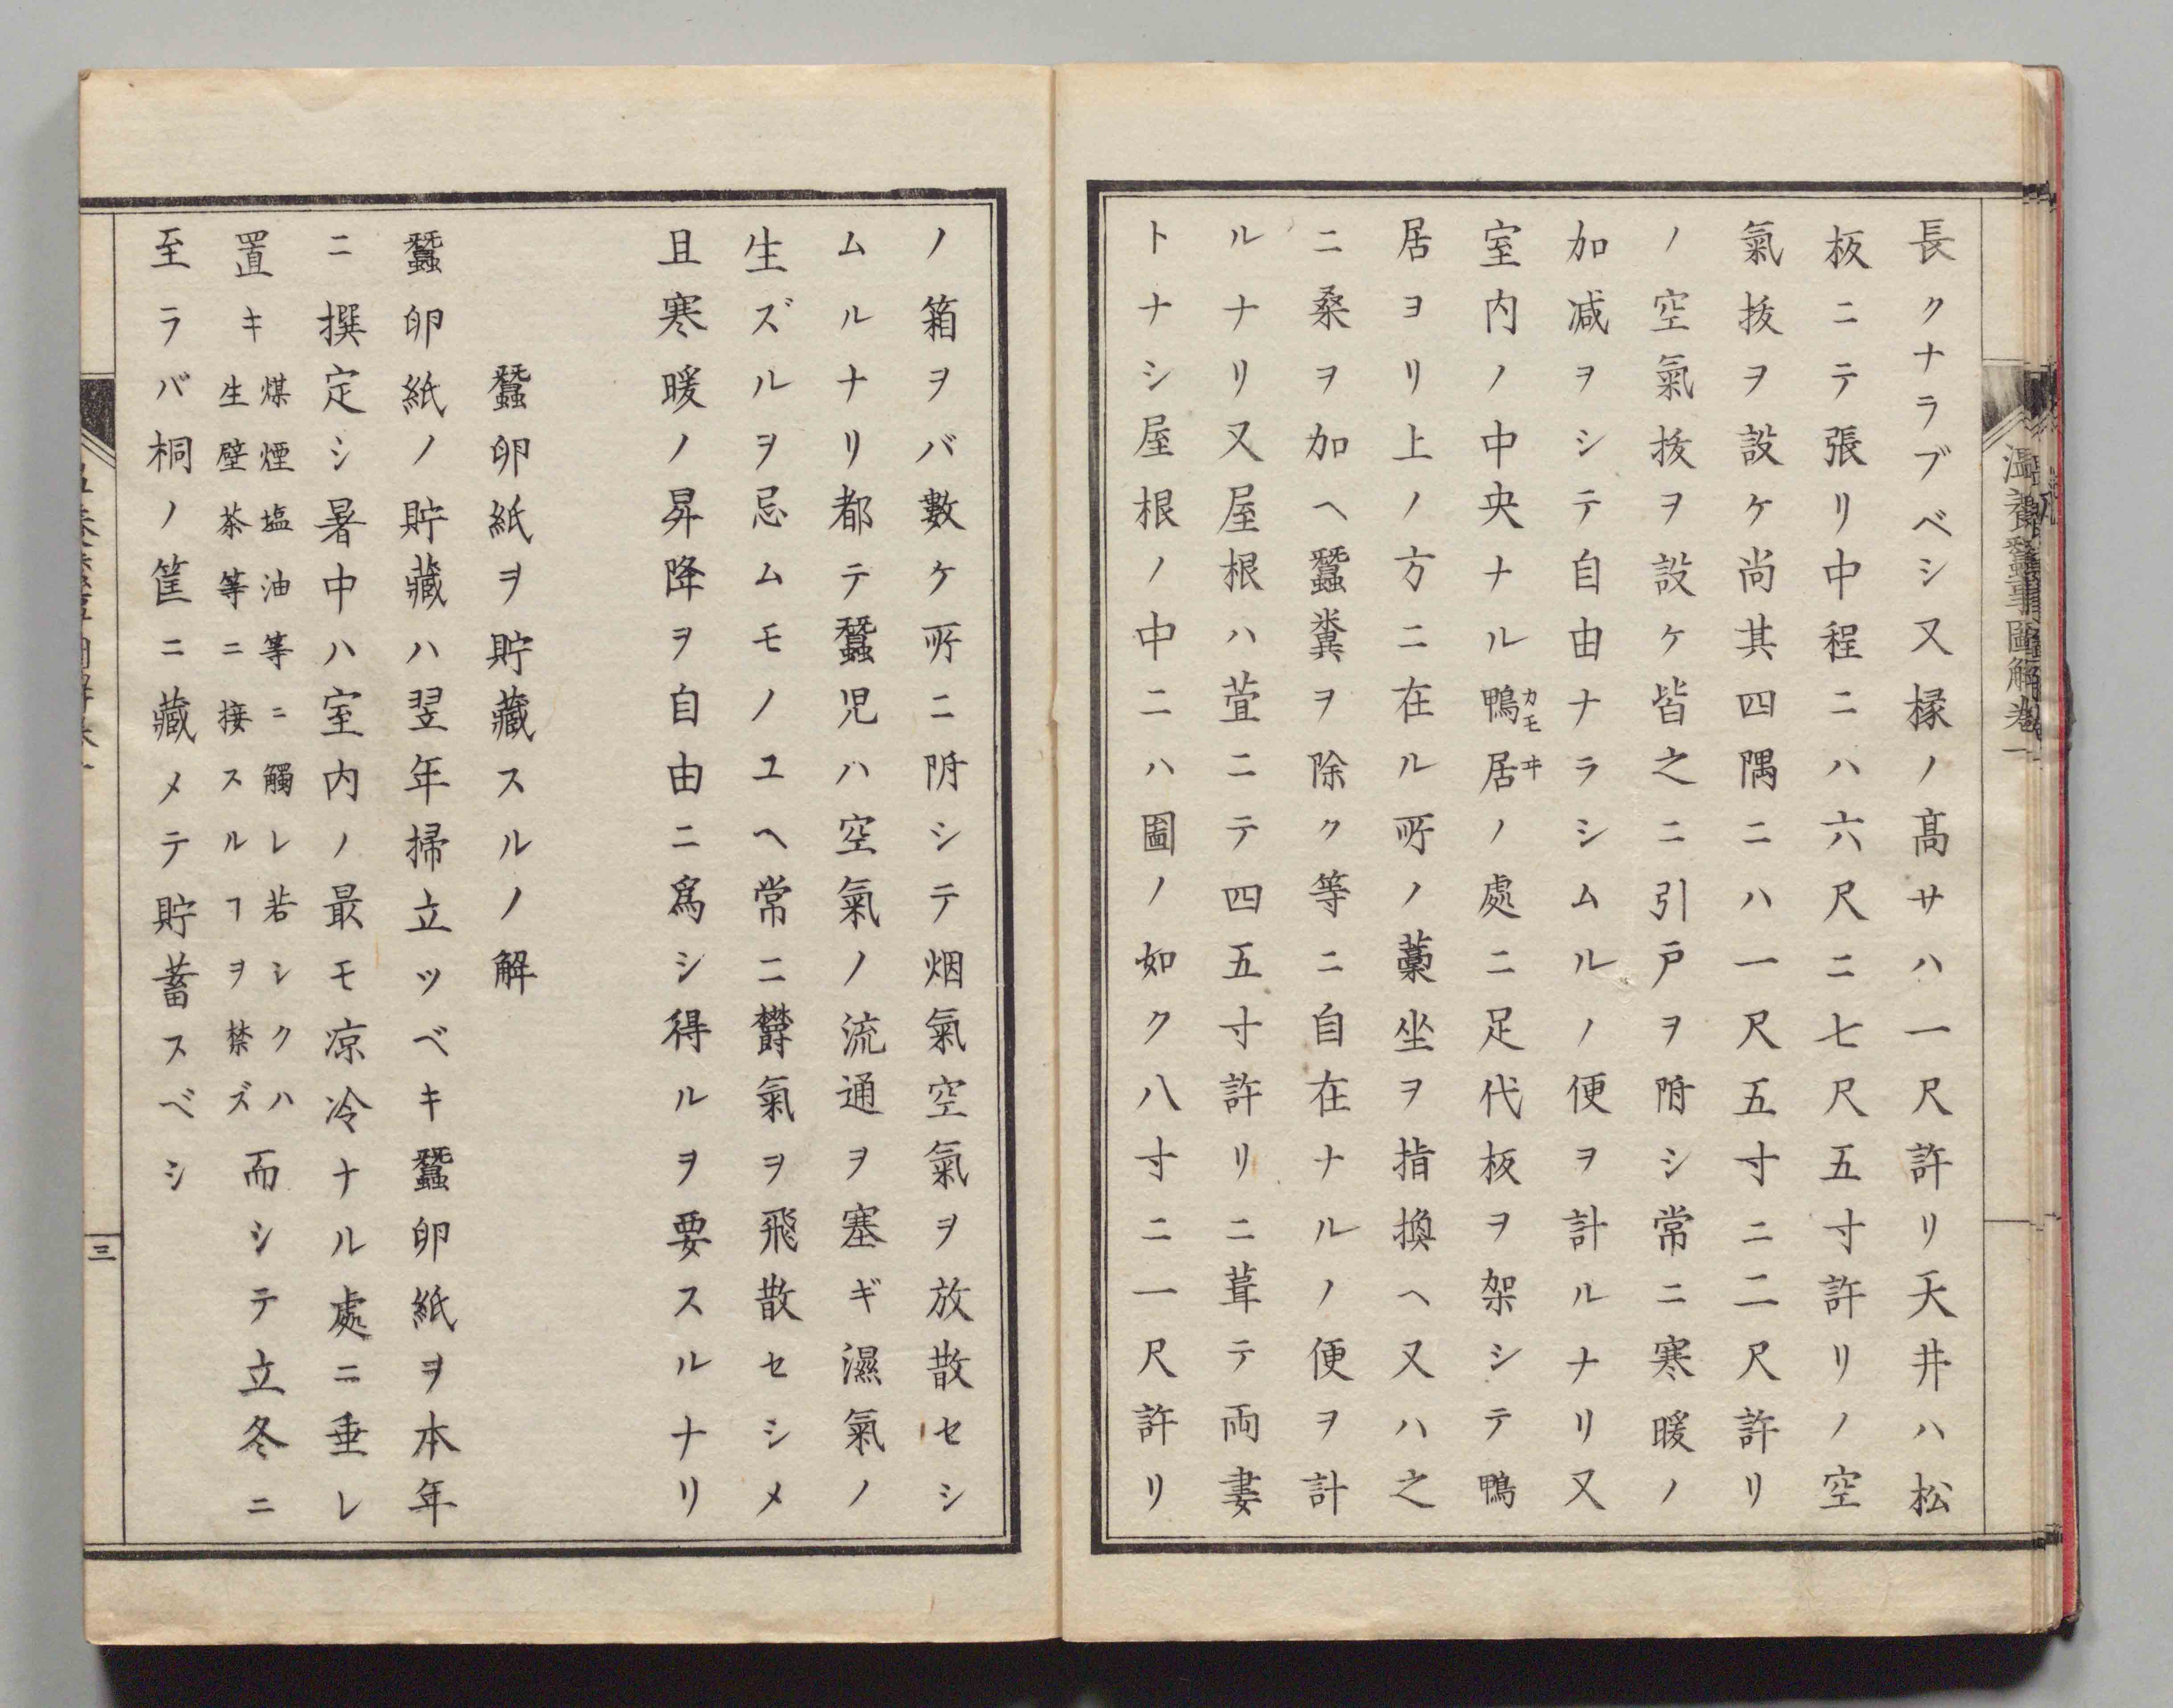 長クナラブベシ又椽ノ髙サハ一尺許リ天井ハ松
板ニテ張リ中程ニハ六尺ニ七尺五寸許リノ空
氣抜ヲ設ケ尚其四隅ニハ一尺五寸ニ二尺許リ
ノ空氣抜ヲ設ケ皆之ニ引戸ヲ附シ常ニ寒暖ノ
加减ヲシテ自由ナラシムルノ便ヲ計ルナリ又
室内ノ中央ナル鴨居ノ處ニ足代板ヲ架シテ鴨
カモヰ
居ヨリ上ノ方ニ在ル所ノ藁坐ヲ指換ヘ又ハ之
ニ桑ヲ加ヘ蠶糞ヲ除ク等ニ自在ナルノ便ヲ計
ルナリ又屋根ハ萓ニテ四五寸許リニ葺テ両妻
トナシ屋根ノ中ニハ圖ノ如ク八寸ニ一尺許リ
ノ箱ヲバ數ケ所ニ附シテ烟氣空氣ヲ放散セシ
ムルナリ都テ蠶児ハ空氣ノ流通ヲ塞ギ濕氣ノ
生ズルヲ忌ムモノユヘ常ニ欝氣ヲ飛散セシメ
且寒暖ノ昇降ヲ自由ニ爲シ得ルヲ要スルナリ
蠶卵紙ヲ貯藏スルノ解
蠶卵紙ノ貯藏ハ翌年掃立ツベキ蠶卵紙ヲ本年
ニ撰定シ暑中ハ室内ノ最モ凉冷ナル處ニ垂レ
置キ煤煙塩油等ニ觸レ若シクハ
生壁茶等ニ接スルヿヲ禁ズ而シテ立冬ニ
至ラバ桐ノ筐ニ藏メテ貯蓄スベシ
三